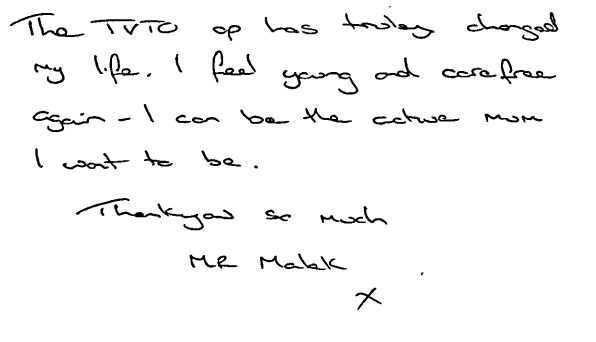 The TVTO op has truley changed
my life. I feel young and carefree
again - I can be the active mum
I want to be.
Thankyou so much
MR Malak
X